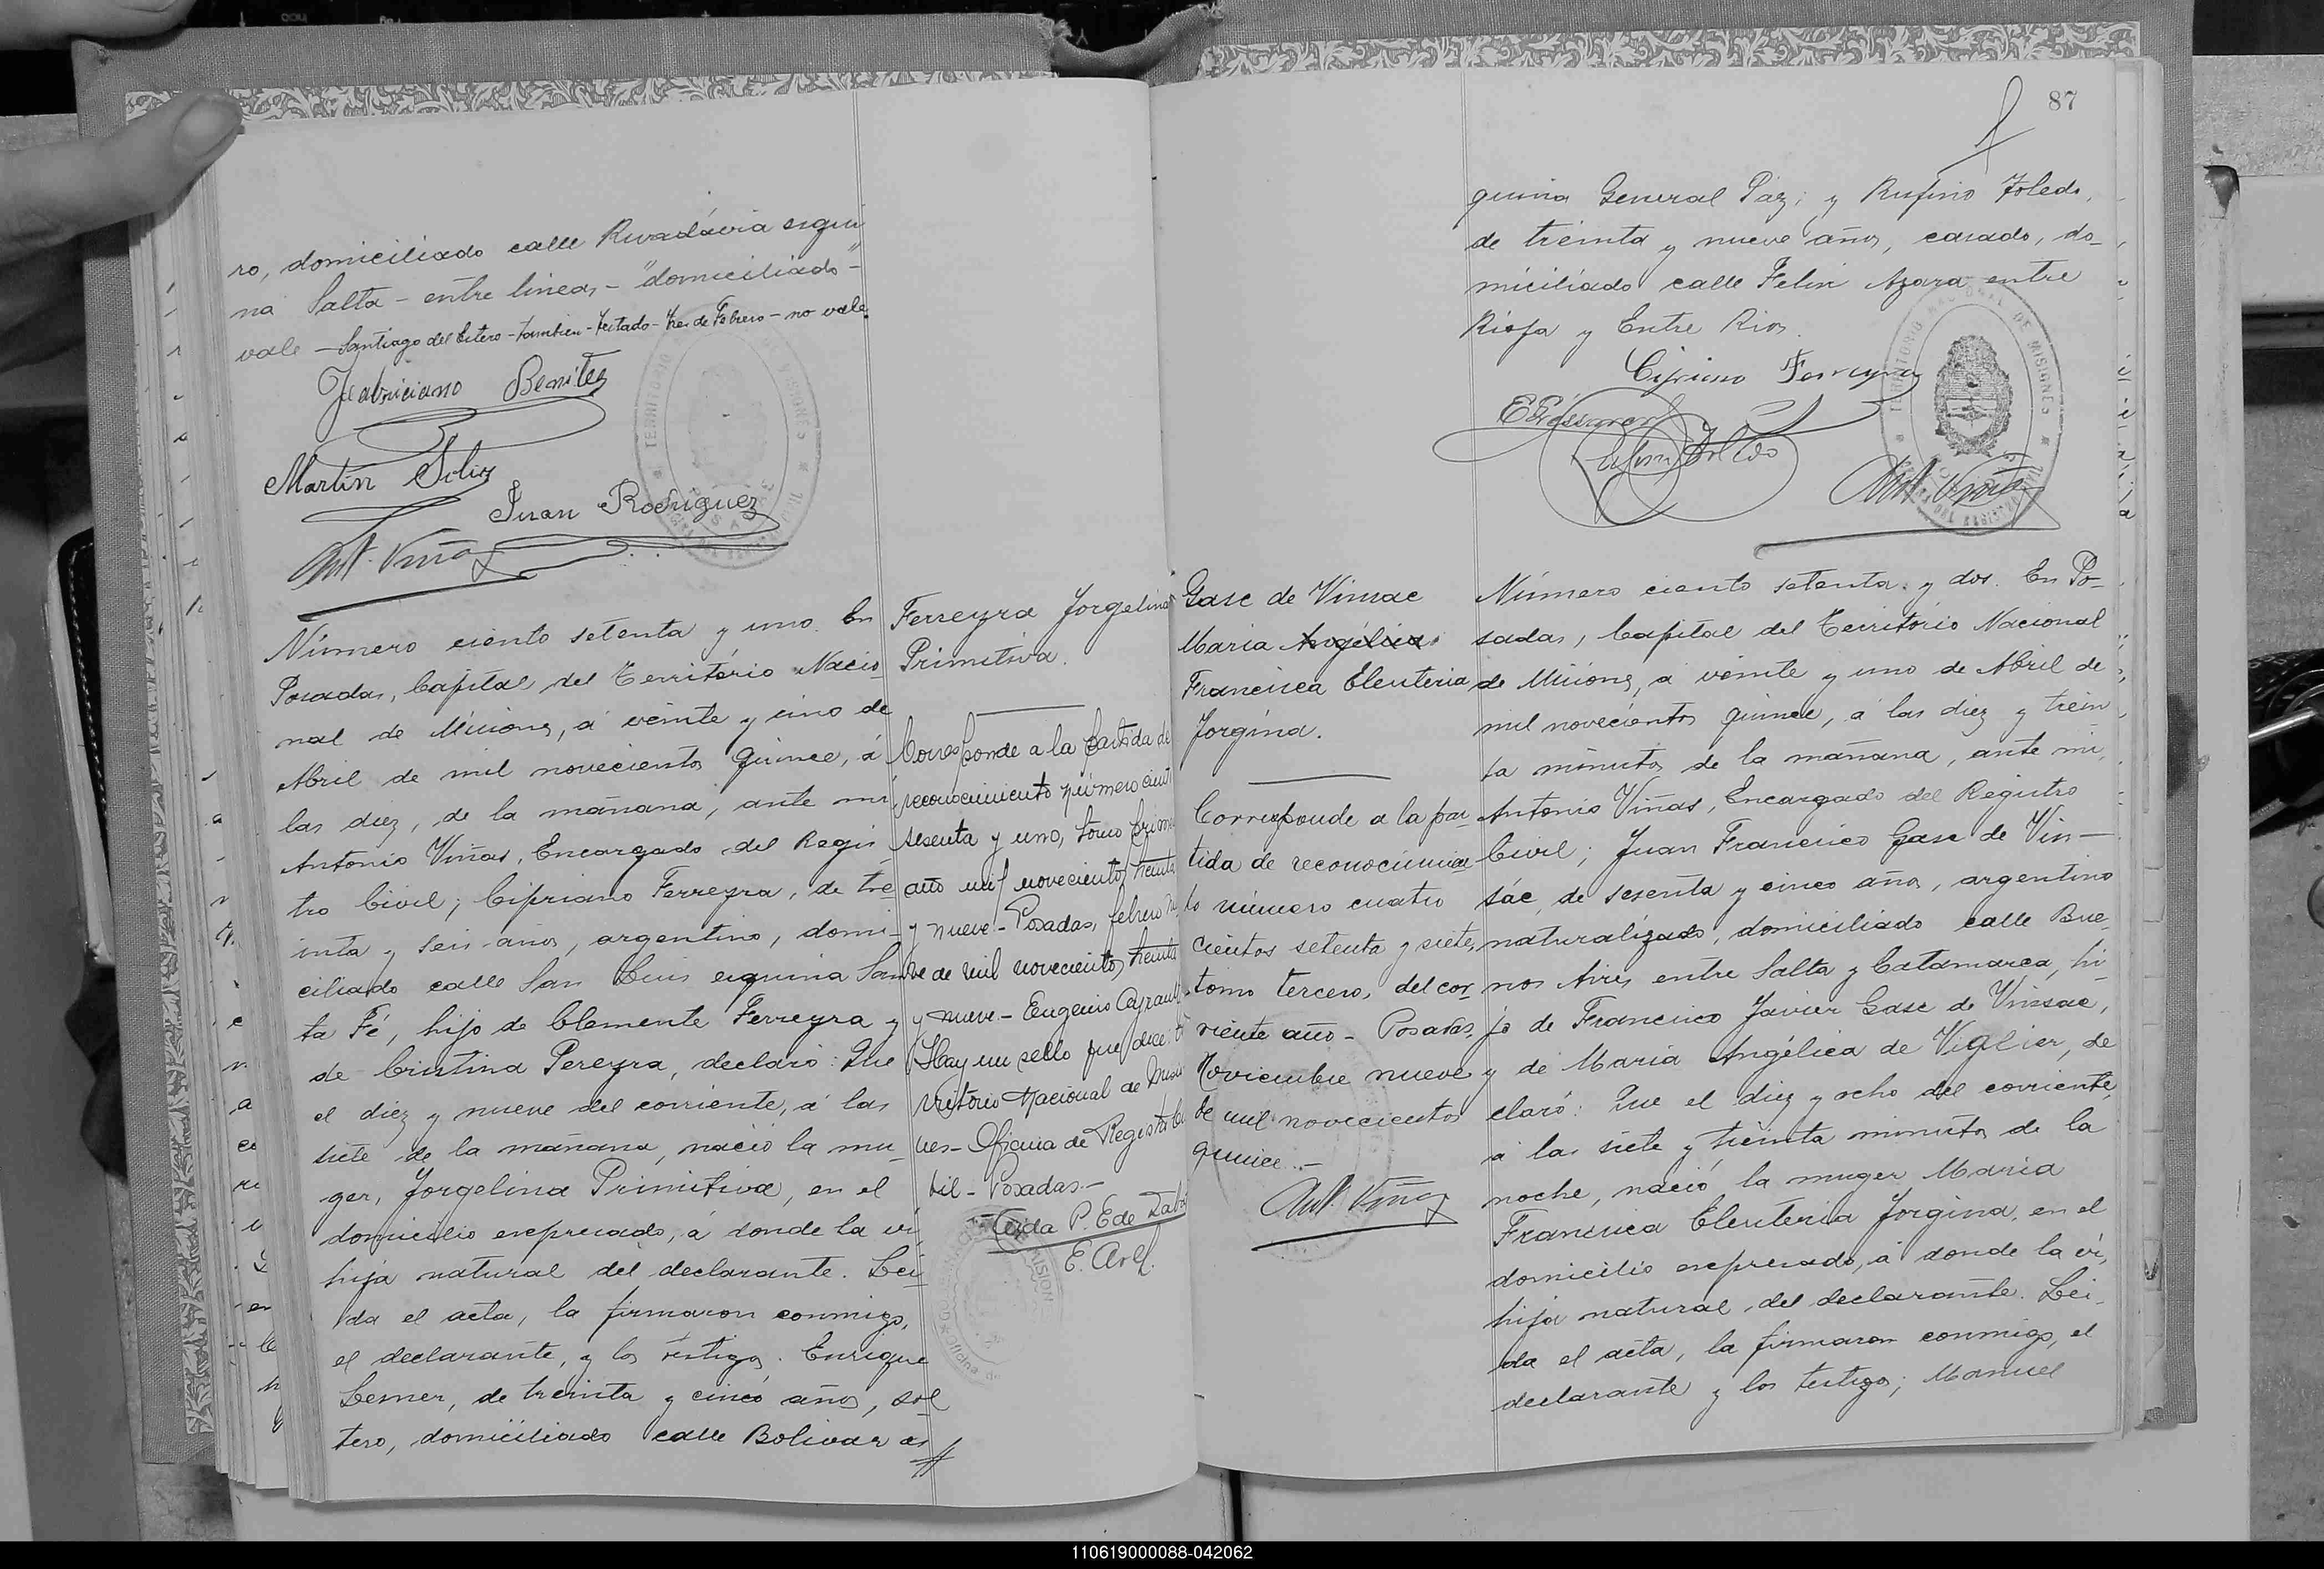 ro, domiciliado calle Rivadávia esqui
na Salta - entre lineas - "domiciliado" -
vale - Santiago del Estero - tambien - testado - tres de Febrero - no vale.
Fabriciano Benitez
Martín Solis
Juan Rodriguez
Ant. Viñas
Número ciento setenta y uno. En
Posadas, Capital del Território Nacio_
nal de Misiones, á veinte y uno de
Abril de mil novecientos quince, á
las diez, de la mañana, ante mi
Antonio Viñas, Encargado del Regis_
tro Civil; Cipriano Ferreyra, de tre_
inta y seis años, argentino, domi_
ciliado calle San Luis esquina San
ta Fé, hijo de Clemente Ferreyra y
de Cristina Pereyra, declaró: Que
el diez y nueve del corriente, á las
siete de la mañana, nació la mu_
ger, Jorgelina Primitiva, en el
domicilio expresado, á donde la ví,
hija natural del declarante. Lei_
da el acta, la firmaron conmigo,
el declarante, y los testigos: Enrique
Lesner, de treinta y cinco años, sol_
tero, domiciliado calle Bolivar es
Ferreyra Jorgelina
Primitiva.
Corresponde a la partida de
reconocimiento número ciento
sesenta y uno, tomo primero
año mil novecientos treinta
y nueve - Posadas, febrero
de mil novecientos treinta
y nueve. - Eugenio
Hay un sello que dice: Te
rritorio Nacional de Misio
nes - Oficina de Registro Ci
vil - Posadas. -
P. E de
E. Arq.
87
quina General Paz; y Rufino Toledo,
de treinta y nueve años, casado, do_
miciliado calle Felix Azara entre
Rioja y Entre Rios.
Cipriano Ferreyra
Rufino Toledo
Ant. Viñas
TERRITORIO NACIONAL DE MISIONES
Gasc de Vinsac
Maria Angélica
Francisca Eleuteria
Jorgina.
Corresponde a la par_
tida de reconocimien
to número cuatro
cientos setenta y siete,
tomo tercero, del cor_
riente año - Posadas,
Noviembre nueve
de mil novecientos
quince. -
Ant. Viñas
Número ciento setenta y dos. En Po_
sadas, Capital del Território Nacional
de Misiones, á veinte y uno de Abril de
mil novecientos quince, á las diez y trein
ta minutos de la mañana, ante mi,
Antonio Viñas, Encargado del Registro
Civil; Juan Francisco Gasc de Vin_
sác, de sesenta y cinco años, argentino
naturalizado, domiciliado calle Bue_
nos Aires entre Salta y Catamarca, hi_
jo de Francisco Javier Gasc de Vinsac,
y de Maria Angélica de Viglier, de
claró: Que el diez y ocho del corriente,
á las siete y treinta minutos de la
noche, nació la muger Maria
Francisca Eleuteria Jorgina, en el
domicilio expresado, á donde la ví,
hija natural del declarante. Lei_
da el acta, la firmaron conmigo, el
declarante y los testigos; Manuel
110619000088-042062